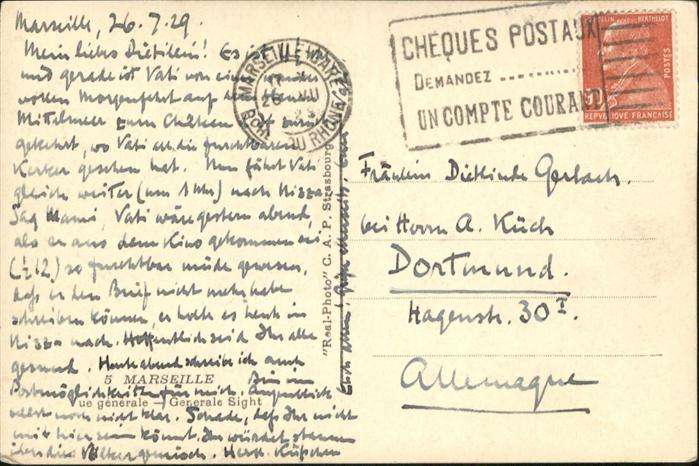 Marseille, 26.7.29.
Mein liebes Dietilein! Es ist
und gerade ist Vati von einer
vollen Morgenfahrt auf
Mittelmeer zum Château d'If zurück
gekehrt, wo Vati all die furchtbaren
Kerker gesehen hat. Nun fährt Vati
gleich weiter (um 1 Uhr) nach Nizza.
Sag Mami, Vati wäre gestern abend,
als er aus dem Kino gekommen sei
(½12) so furchtbar müde gewesen,
daß er den Brief nicht mehr habe
schreiben können, er holte es heut in
Nizza nach. Hoffentlich seid Ihr alle
gesund. Heute abend schreibe ich auch
5 MARSEILLE
Vue générale — General Sight
Postmöglichkeiten für mich. Augenblick
noch nicht klar. Schade, daß Ihr nicht
mit hier sein könnt. Ihr würdet staunen
über das Völkergemisch. Herzl. Küßchen
"Real-Photo" C. A. P. Strasbourg
MARSEILLE GARE
26
BCHES DU RHONE
CHÈQUES POSTAUX
DEMANDEZ
UN COMPTE COURANT
BERTHELOT
POSTES
REPUBLIQUE FRANÇAISE
Fräulein Dietlinde Gerlach.
bei Herrn A. Küch
Dortmund.
Hagenstr. 30 I.
Allemagne